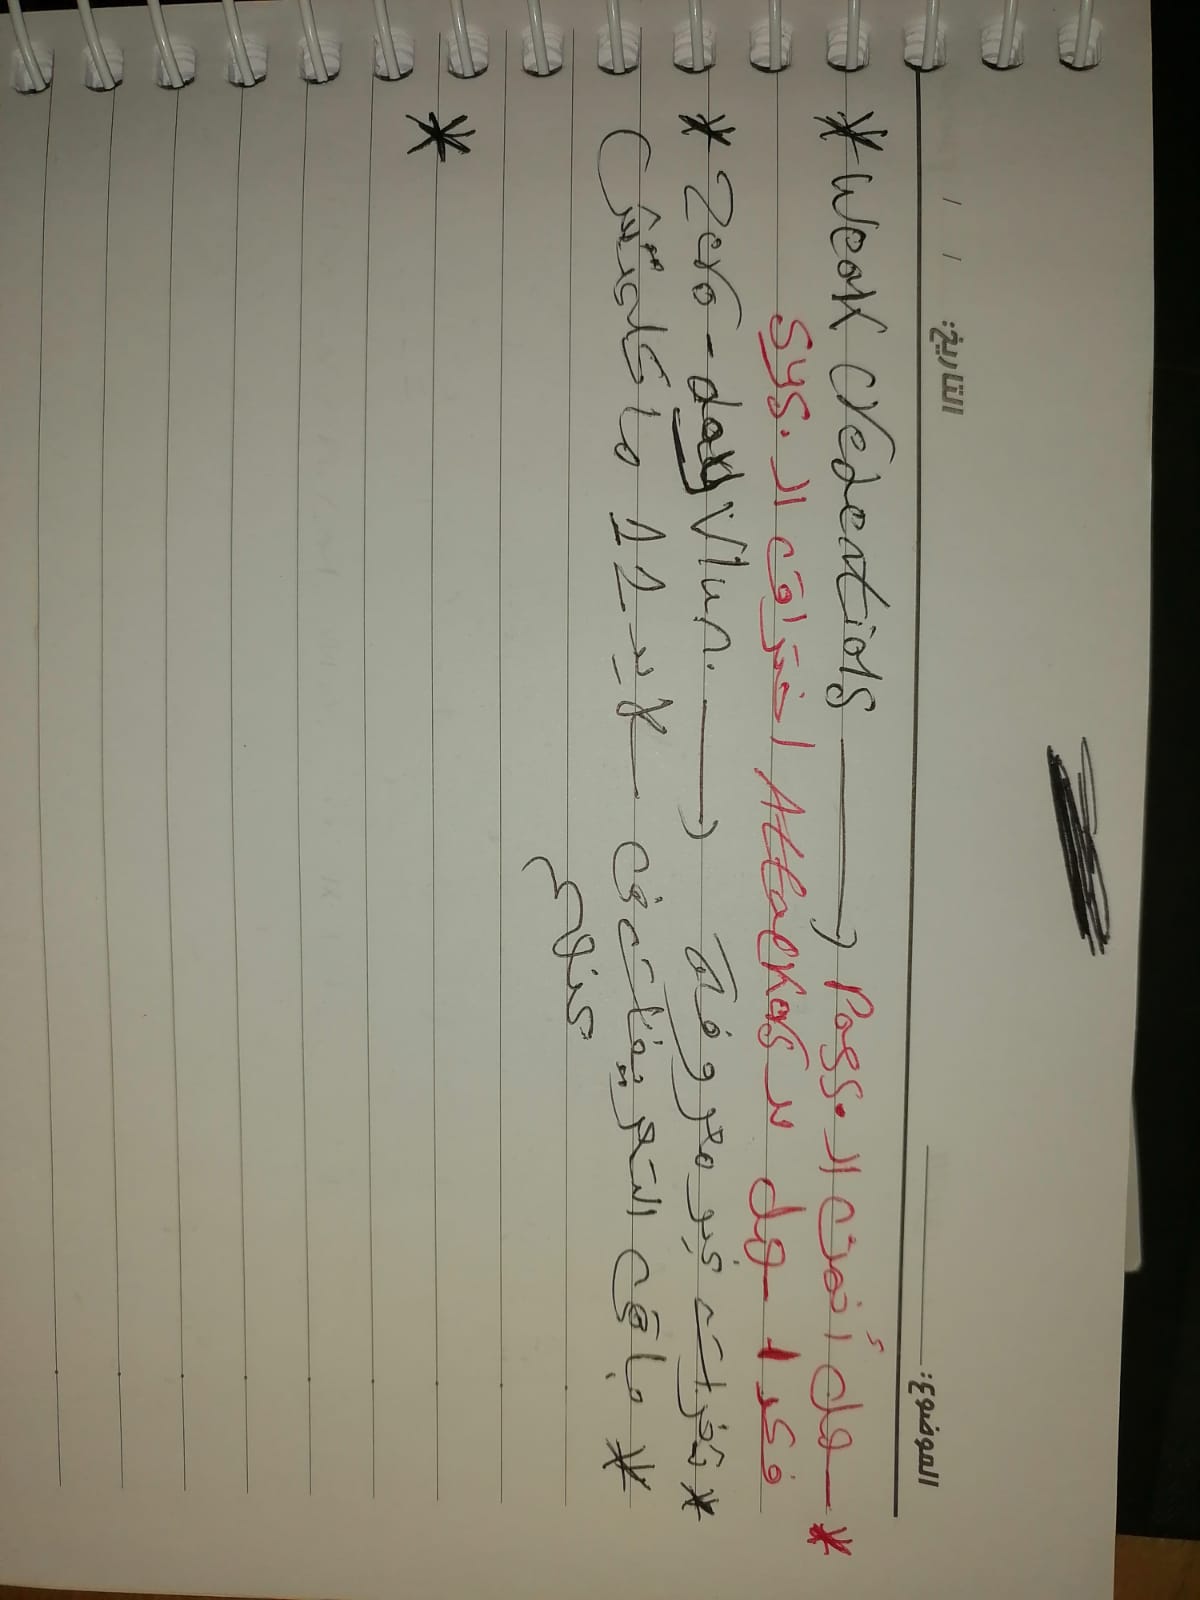 الموضوع: التاريخ: / /
* Weak Credentials → * سهل أخمن الـ Pass.
فكدا سهل لل Attackers اختراق الـ sys.
* Zero-day Vlun. → * ثغرات غير معروفة
* باقى التعريفات فى سلايد 11 ما كلمتش
عنهم
*